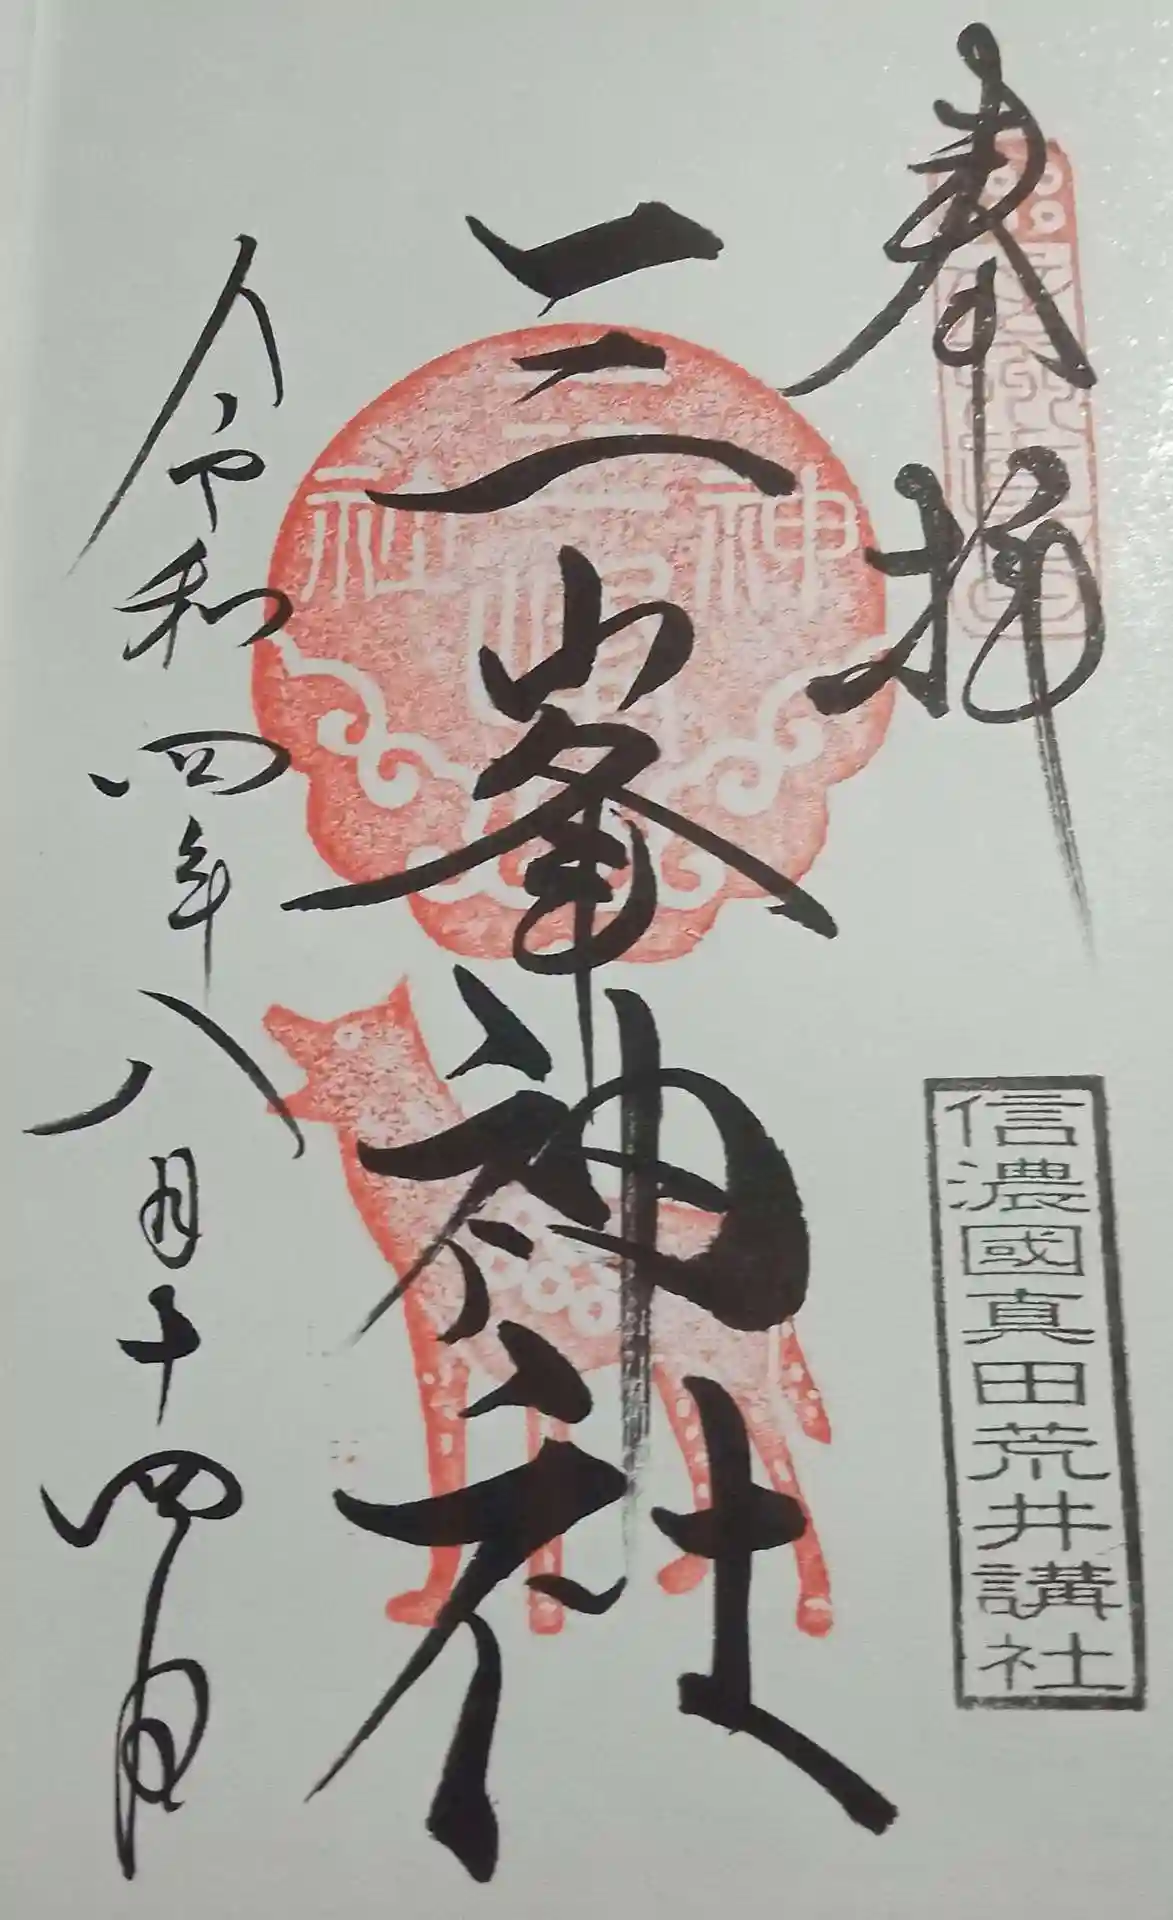 奉拝
信濃國真田荒井講社
三峯神社
令和四年八月十四日